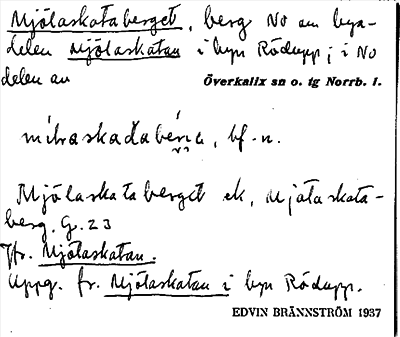 Mjölaskataberget, berg NO om bya-
delen Mjölaskatan i byn Rödupp; i NO
delen av Överkalix sn o. tg Norrb. l.
bf. n.
Mjölaskataberget ek, Mjölaskata-
berg. G. 23
Jfr. Mjölaskatan.
Uppg. fr. Mjölaskatan i byn Rödupp.
EDVIN BRÄNNSTRÖM 1937